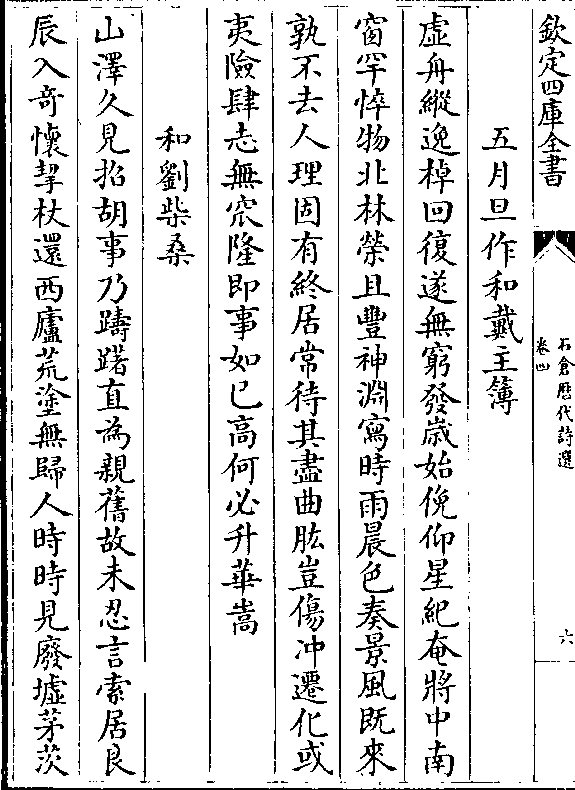 欽定四庫全書
石倉歷代詩選
卷四
六
五月旦作和戴主簿
虛舟縱逸棹回復遂無窮發歲始俛仰星紀奄將中南
窗罕悴物北林榮且豐神淵寫時雨晨色奏景風既來
孰不去人理固有終居常待其盡曲肱豈傷冲遷化或
夷險肆志無窊隆即事如已高何必升華嵩
和劉柴桑
山澤久見招胡事乃躊躇直為親舊故未忍言索居良
辰入奇懷挈杖還西廬荒塗無歸人時時見廢墟茅茨